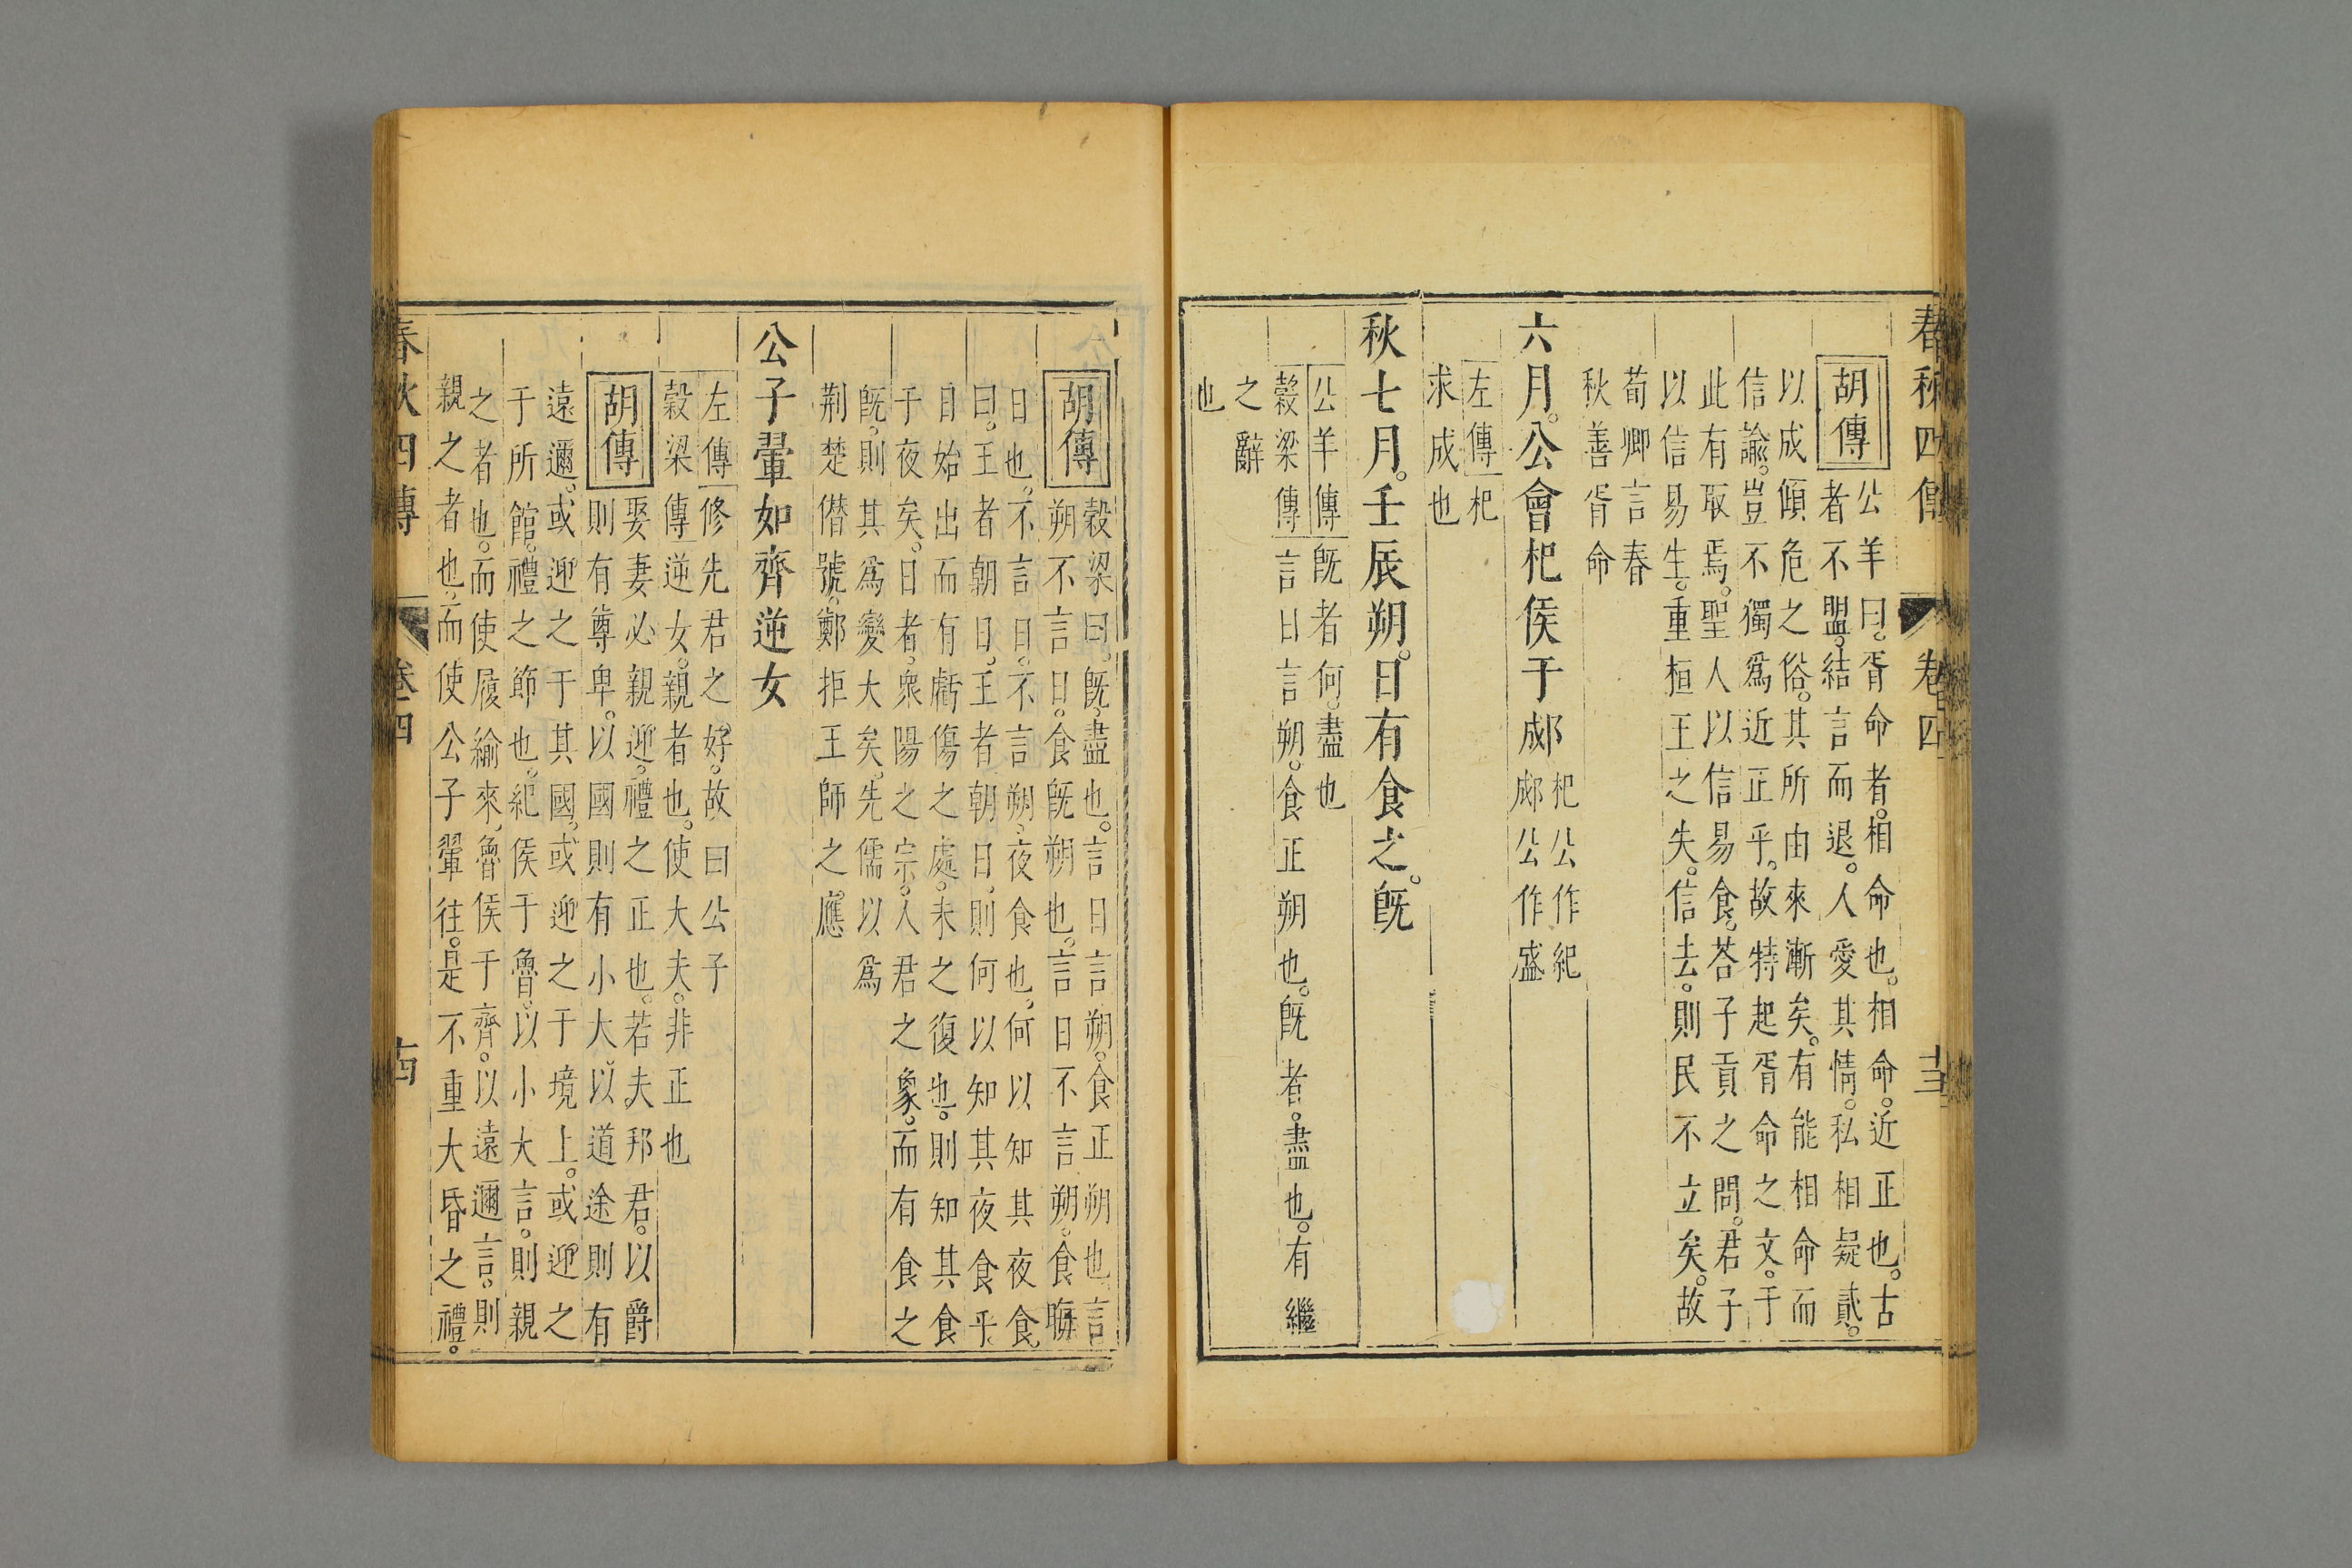 春秋四傳 卷四 十三
胡傳
公羊曰。胥命者。相命也。相命。近正也。古
者不盟。結言而退。人愛其情。私相疑貳。
以成傾危之俗。其所由來漸矣。有能相命而
信諭。豈不獨爲近正乎。故特起胥命之文。于
此有取焉。聖人以信易食。荅子貢之問。君子
以信易生。重桓王之失。信去。則民不立矣。故
荀卿言春
秋善胥命
六月。公會杞侯于郕
杞公作紀
郕公作盛
左傳杞
求成也
秋七月。壬辰朔。日有食之。旣
公羊傳旣者何。盡也
穀梁傳言日言朔。食正朔也。旣者。盡也。有繼
之辭
也
胡傳
穀梁曰。旣。盡也。言日言朔。食正朔也。言
朔不言日。食旣朔也。言日不言朔。食晦
日也。不言日。不言朔。夜食也。何以知其夜食。
曰。王者朝日。王者朝日。則何以知其夜食乎。
日始出而有虧傷之處。未之復也。則知其食
于夜矣。日者。衆陽之宗。人君之象。而有食之
旣。則其爲變大矣。先儒以爲
荆楚僭號。鄭拒王師之應
公子翬如齊逆女
左傳修先君之好。故曰公子
穀梁傳逆女。親者也。使大夫。非正也
胡傳
娶妻必親迎。禮之正也。若夫邦君。以爵
則有尊卑。以國則有小大。以道途則有
遠邇。或迎之于其國。或迎之于境上。或迎之
于所館。禮之節也。紀侯于魯。以小大言。則親
之者也。而使履緰來。魯侯于齊。以遠邇言。則
親之者也。而使公子翬往。是不重大昏之禮。
春秋四傳 卷四 十四